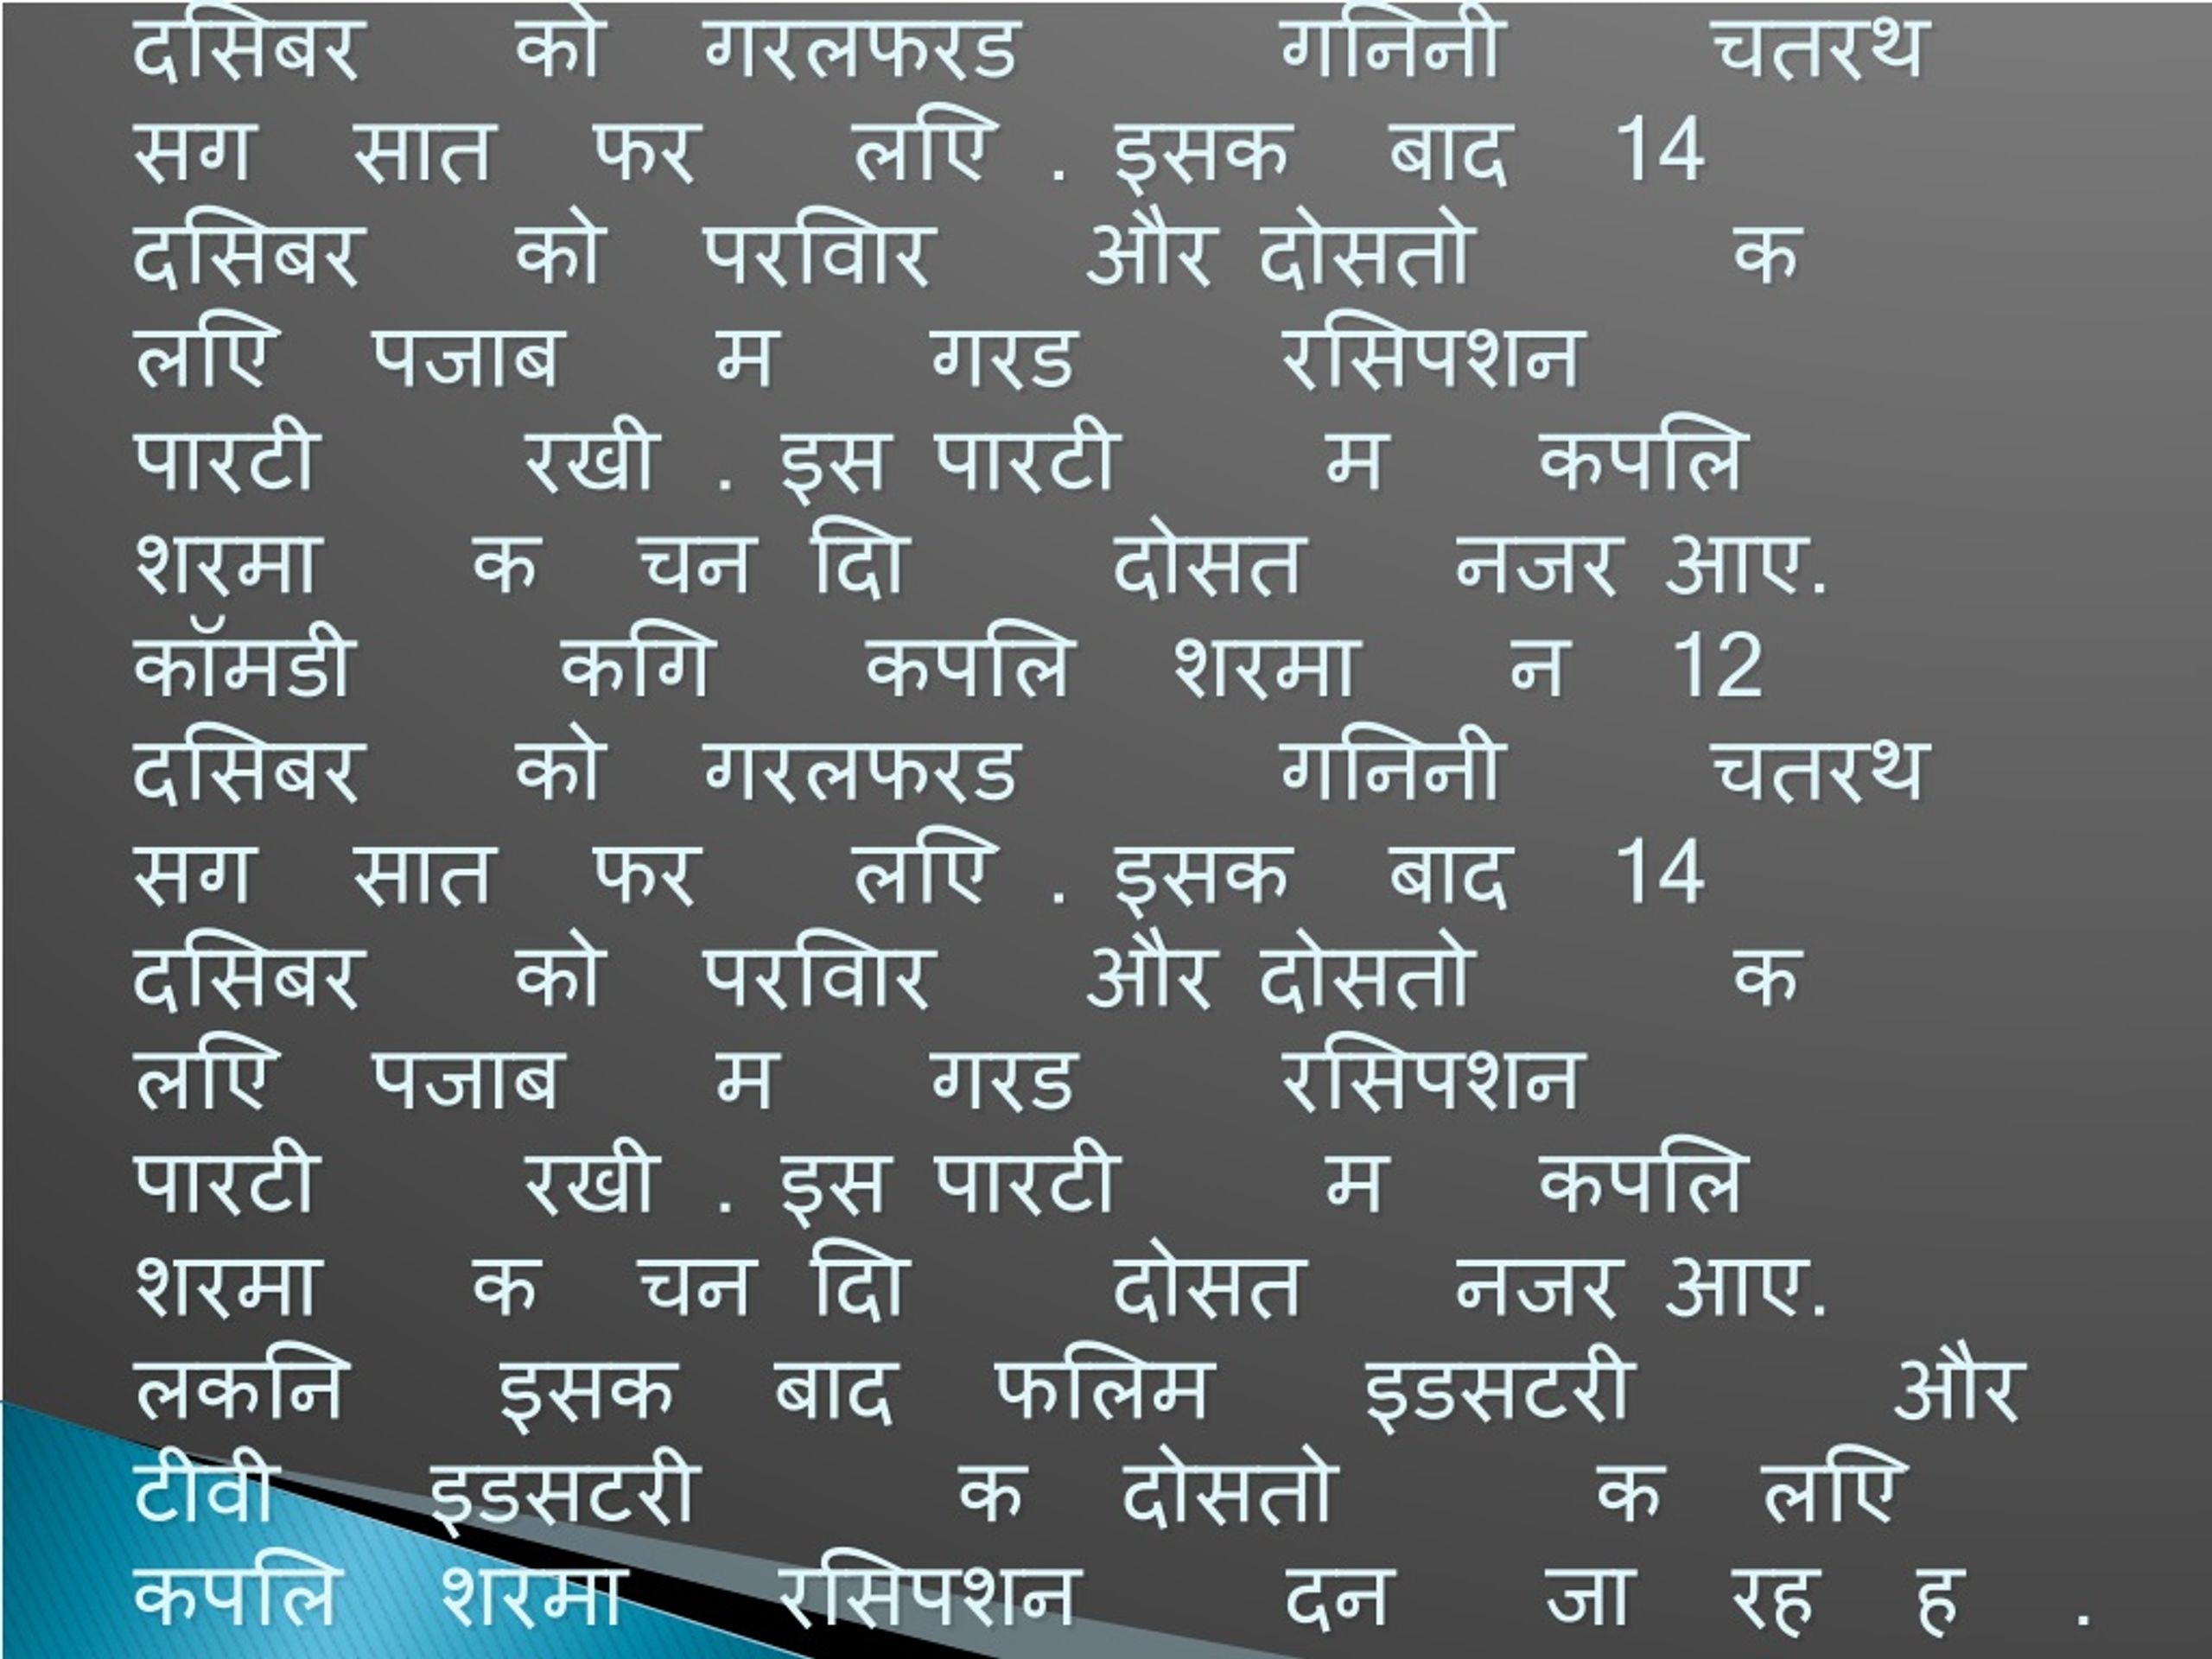 दसिबर को गरलफरड गनिनी चतरथ
सग सात फर लएि . इसक बाद 14
दसिबर को परविार और दोसतो क
लएि पजाब म गरड रसिपशन
पारटी रखी . इस पारटी म कपलि
शरमा क चन दिा दोसत नजर आए.
कॉमडी कगि कपलि शरमा न 12
दसिबर को गरलफरड गनिनी चतरथ
सग सात फर लएि . इसक बाद 14
दसिबर को परविार और दोसतो क
लएि पजाब म गरड रसिपशन
पारटी रखी . इस पारटी म कपलि
शरमा क चन दिा दोसत नजर आए.
लकनि इसक बाद फलिम इडसटरी और
टीवी इडसटरी क दोसतो क लएि
कपलि शरमा रसिपशन दन जा रह ह .